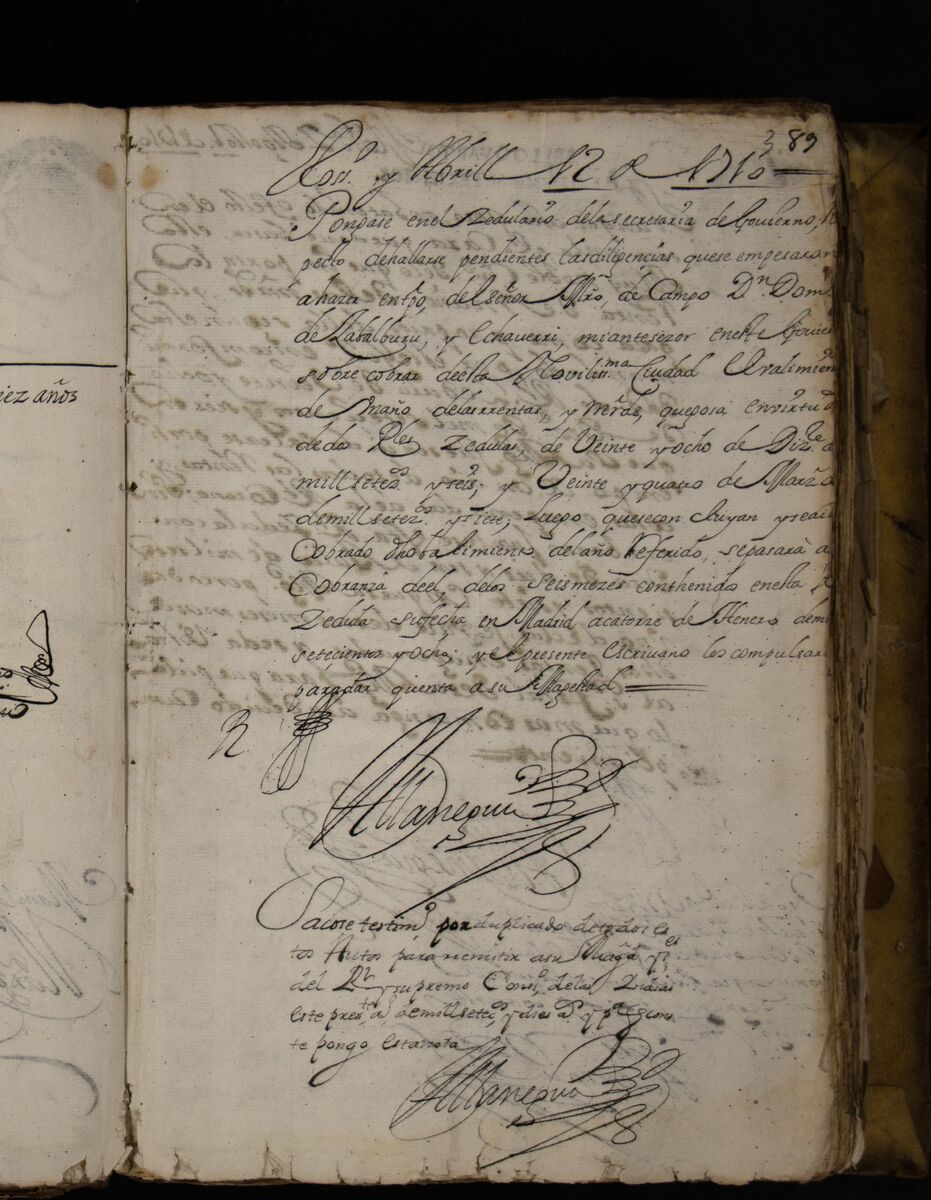 389
Poss. y Abrill 12 de 1710
Pongase en el Zedulario de la secretaria de Govierno, Re
pecto de hallarse pendientes las diligencias que se empesaron
a hazer en tpo, del señor Mro, de Campo Dn. Dom
de Zabalburu, y Echaverri, mi antesezor en este Govier
sobre cobrar de esta Noviliss.ma Ciudad El valimien
de Un año de las rrentas, y Mrds, que posa en virtud
de dos Rles Zedulas, de Veinte y ocho de Dizre. d
mill setecs. y seis; y Veinte y quatro de Marzo
de mill setezs. y siete; Luego que se con cluyan y sea
Cobrado dho balimiento del año Referido, se pasará a
Cobranza de el, de los seis mezes conthenidos en esta R
Zedula su fecha en Madrid a catorze de Henero de mi
setecientos y ocho; y el presente Escrivano los compulsará
para dar quenta a su Magestad
R
Villanegui
Sacose testimo. por duplicado de todos es
tos Autos para rremitir a su Magd. y Ses
del Rl. y supremo Conso. de las Indias
este preste. ao. de mill setecs. y dies as. y pa. q cons
te pongo esta nota
Villanegui
iez años